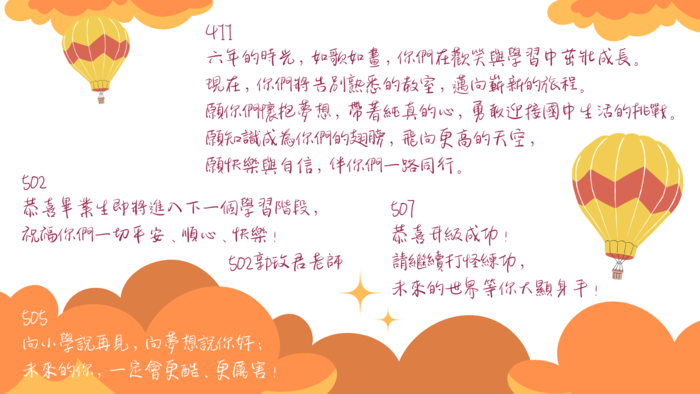 411
六年的時光，如歌如畫，你們在歡笑與學習中茁壯成長。
現在，你們將告別熟悉的教室，邁向嶄新的旅程。
願你們懷抱夢想，帶著純真的心，勇敢迎接國中生活的挑戰。
願知識成為你們的翅膀，飛向更高的天空，
願快樂與自信，伴你們一路同行。
502
恭喜畢業生即將進入下一個學習階段，
祝福你們一切平安、順心、快樂！
502郭玫君老師
507
恭喜升級成功！
請繼續打怪練功，
未來的世界等你大顯身手！
505
向小學說再見，向夢想說你好；
未來的你，一定會更酷、更厲害！